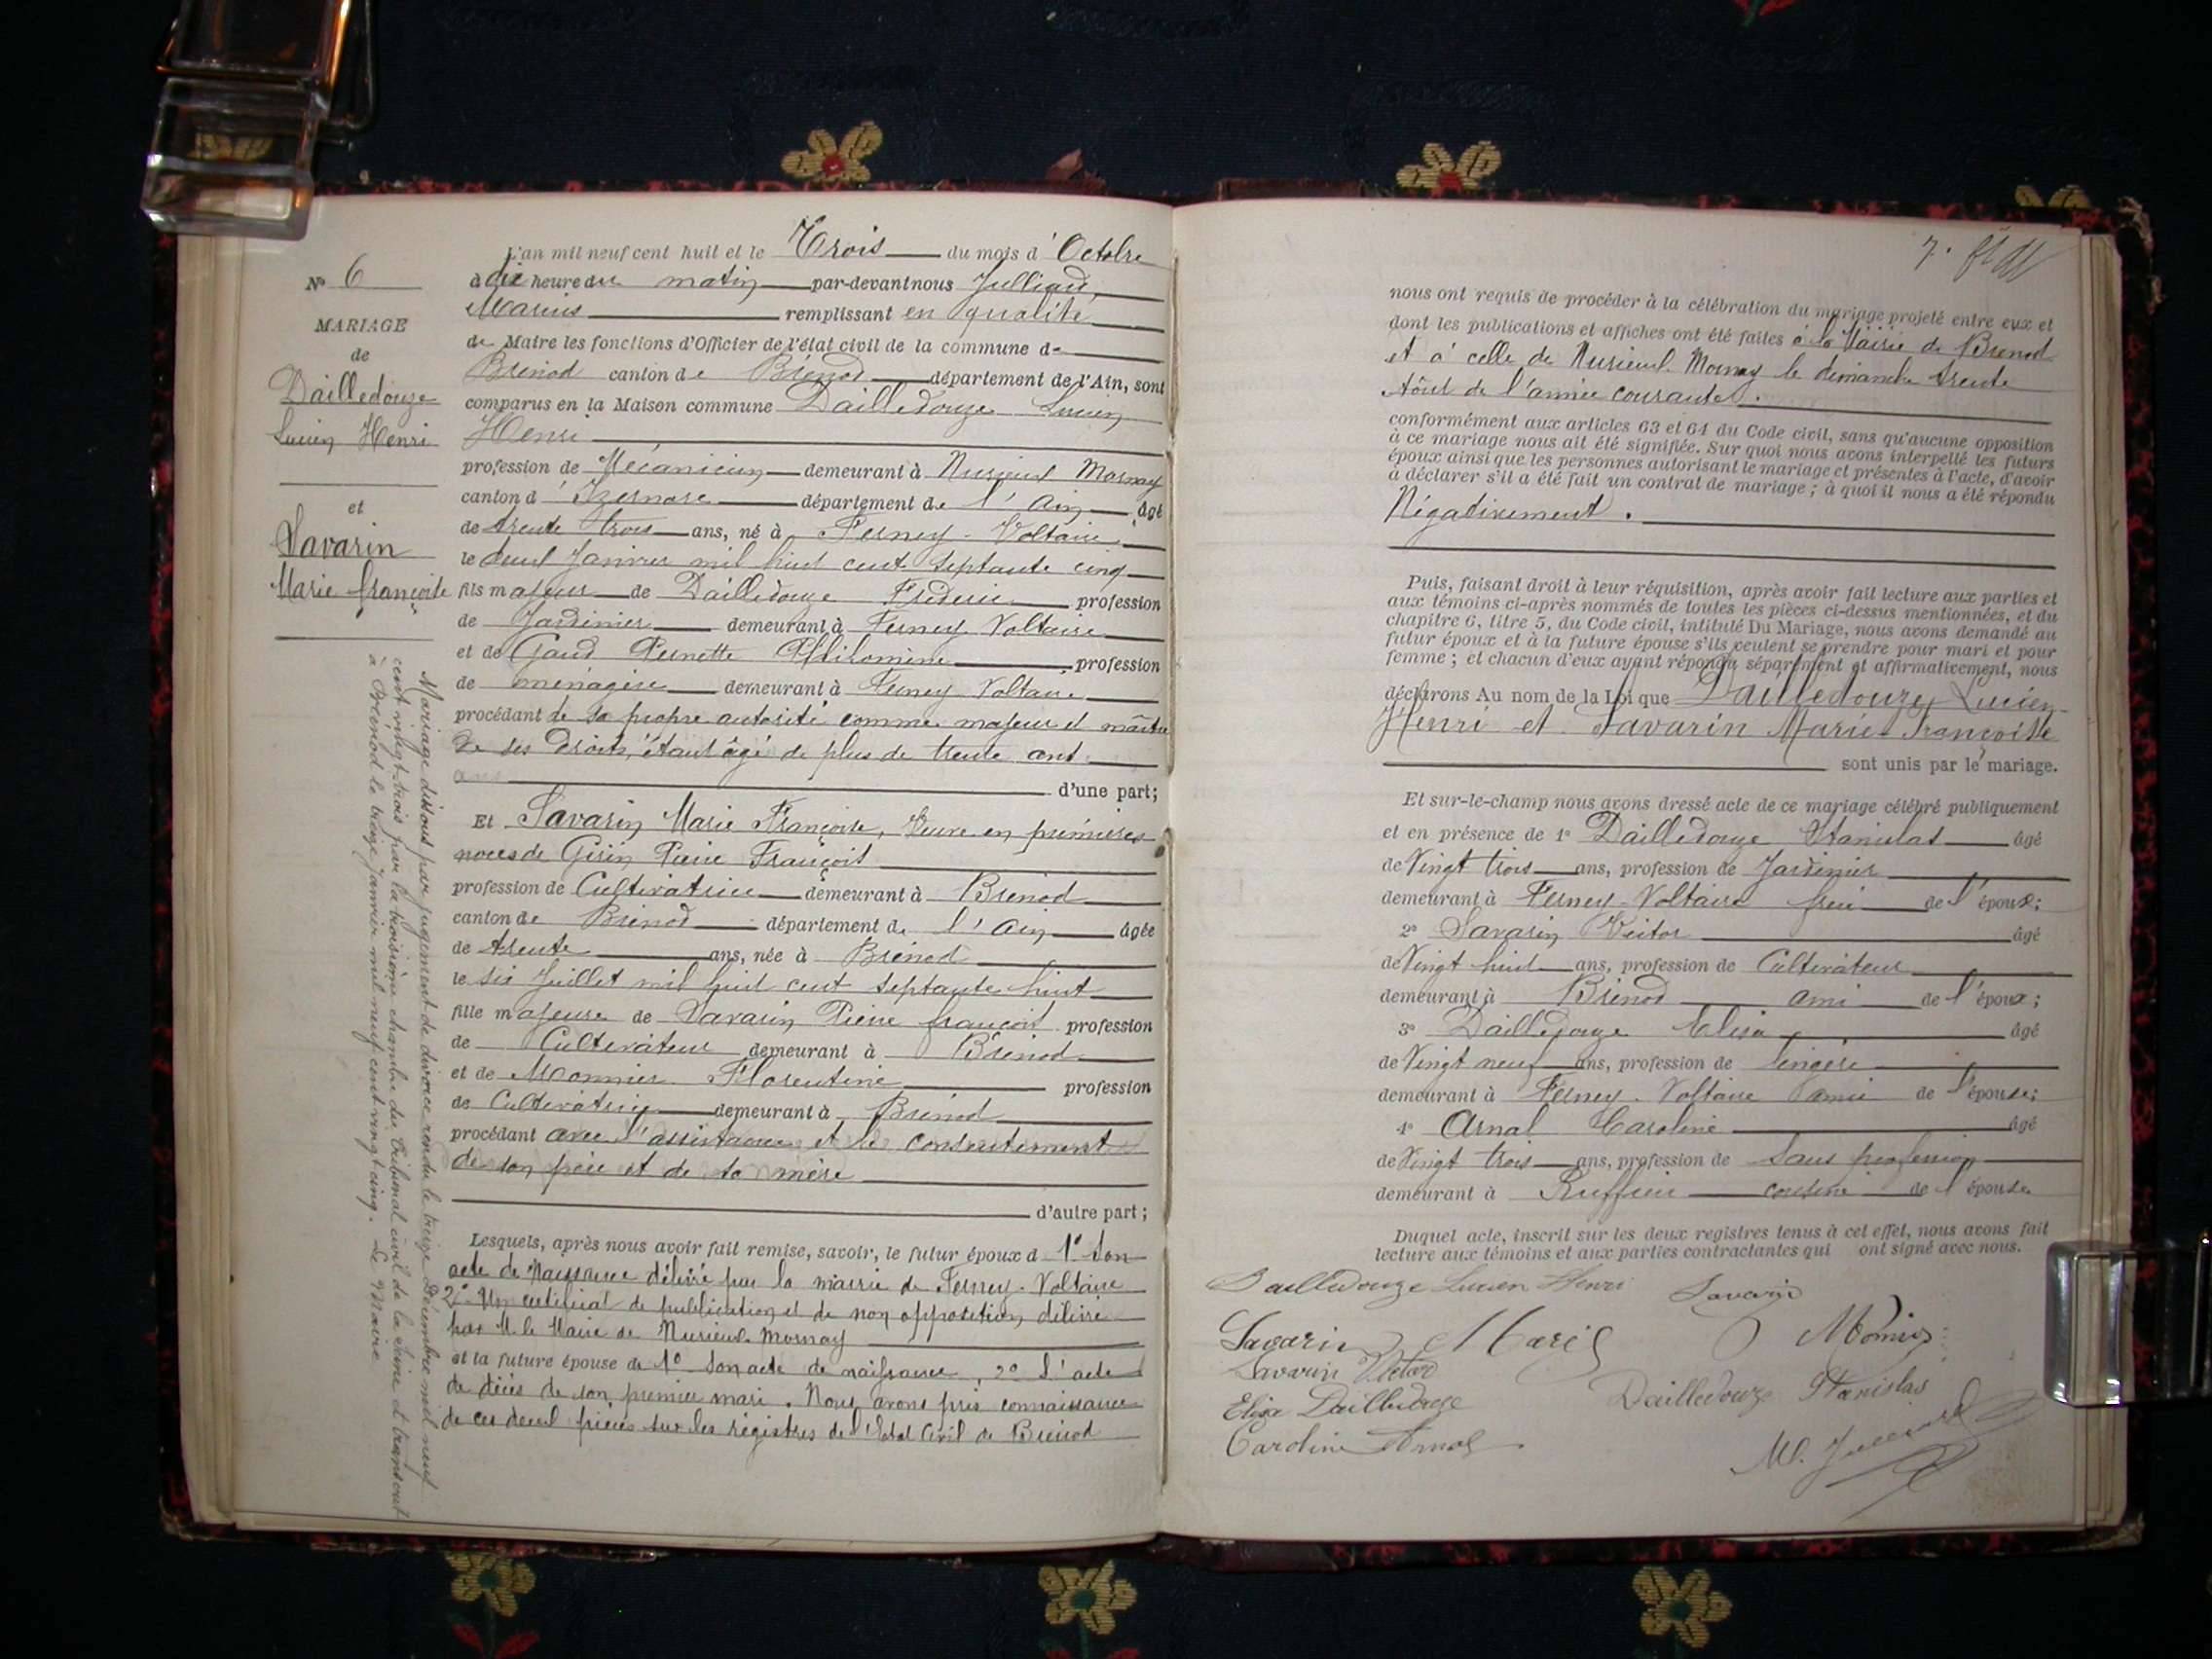 N° 6
MARIAGE
de
Dailledouze
Lucien Henri
et
Savarin
Marie françoise
Mariage dissous par jugement de divorce rendu le treize Décembre mil neuf
cent vingt-trois par la troisième chambre du Tribunal civil de la Seine et transcrit
à Brénod le treize Janvier mil neuf cent vingt cinq. Le Maire
L'an mil neuf cent huit et le Trois du mois d'Octobre
à dix heure du matin par-devant nous Julliard,
Marius remplissant en qualité
de Maire les fonctions d'Officier de l'état civil de la commune de
Brénod canton de Brénod département de l'Ain, sont
comparus en la Maison commune Dailledouze Lucien
Henri
profession de Mécanicien demeurant à Nurieux Mornay
canton d'Izernore département de l'Ain âgé
de trente trois ans, né à Ferney-Voltaire
le deux Janvier mil huit cent septante cinq
fils majeur de Dailledouze Fréderic profession
de Jardinier demeurant à Ferney Voltaire
et de Gaud Pernette Philomène profession
de ménagère demeurant à Ferney Voltaire
procédant de sa propre autorité comme majeur et maître
de ses droits, étant âgé de plus de trente ans
d'une part;
Et Savarin Marie Françoise, Veuve en premières
noces de Girin Pierre François
profession de Cultivatrice demeurant à Brénod
canton de Brénod département de l'Ain âgée
de trente ans, née à Brénod
le six Juillet mil huit cent septante huit
fille majeure de Savarin Pierre françois profession
de Cultivateur demeurant à Brénod
et de Monnier Florentine profession
de Cultivatrice demeurant à Brénod
procédant avec l'assistance et le consentement
de son père et de sa mère
d'autre part;
Lesquels, après nous avoir fait remise, savoir, le futur époux d 1° Son
acte de Naissance délivré par la mairie de Ferney-Voltaire
2° Un certificat de publication et de non opposition, délivré
par M. le Maire de Nurieux-Mornay
et la future épouse de 1° Son acte de naissance, 2° L'acte
de décès de son premier mari. Nous avons pris connaissance
de ces deux pièces sur les registres de l'Etat Civil de Brénod
7.
nous ont requis de procéder à la célébration du mariage projeté entre eux et
dont les publications et affiches ont été faites à la Mairie de Brenod
et à celle de Nurieux-Mornay le dimanche trente
Août de l'année courante.
conformément aux articles 63 et 64 du Code civil, sans qu'aucune opposition
à ce mariage nous ait été signifiée. Sur quoi nous avons interpellé les futurs
époux ainsi que les personnes autorisant le mariage et présentes à l'acte, d'avoir
à déclarer s'il a été fait un contrat de mariage; à quoi il nous a été répondu
Négativement.
Puis, faisant droit à leur réquisition, après avoir fait lecture aux parties et
aux témoins ci-après nommés de toutes les pièces ci-dessus mentionnées, et du
chapitre 6, titre 5, du Code civil, intitulé Du Mariage, nous avons demandé au
futur époux et à la future épouse s'ils veulent se prendre pour mari et pour
femme; et chacun d'eux ayant répondu séparément et affirmativement, nous
déclarons Au nom de la Loi que Dailledouze Lucien
Henri et Savarin Marie Françoise
sont unis par le mariage.
Et sur-le-champ nous avons dressé acte de ce mariage célébré publiquement
et en présence de 1° Dailledouze Stanislas âgé
de Vingt trois ans, profession de Jardinier
demeurant à Ferney-Voltaire frère de l'époux;
2° Savarin Victor âgé
de Vingt huit ans, profession de Cultivateur
demeurant à Brénod ami de l'époux;
3° Dailledouze Elisa âgé
de Vingt neuf ans, profession de lingère
demeurant à Ferney-Voltaire amie de l'épouse;
4° Arnal Caroline âgé
de Vingt trois ans, profession de Sans profession
demeurant à Ruffieu cousine de l'épouse
Duquel acte, inscrit sur les deux registres tenus à cet effet, nous avons fait
lecture aux témoins et aux parties contractantes qui ont signé avec nous.
Dailledouze Lucien Henri Savarin
Savarin Marie
Savarin Victor
Elisa Dailledouze Dailledouze Stanislas
Caroline Arnal M. Julliard